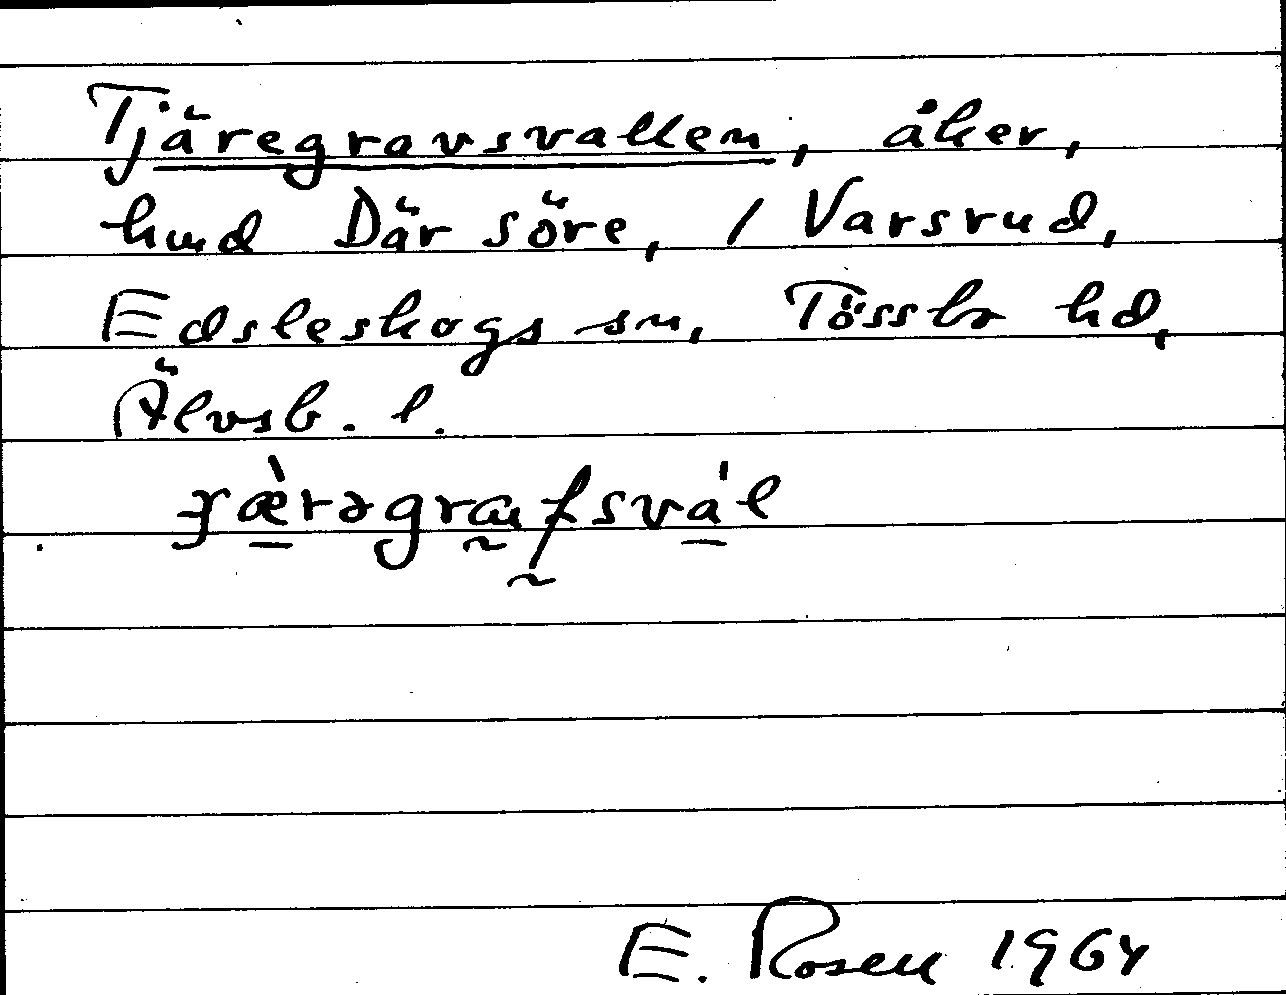 Tjäregravsvallen, åker,
hmd Där söre, / Varsrud,
Edsleskogs sn, Tössbo hd,
Älvsb. l.
E. Rosen 1964